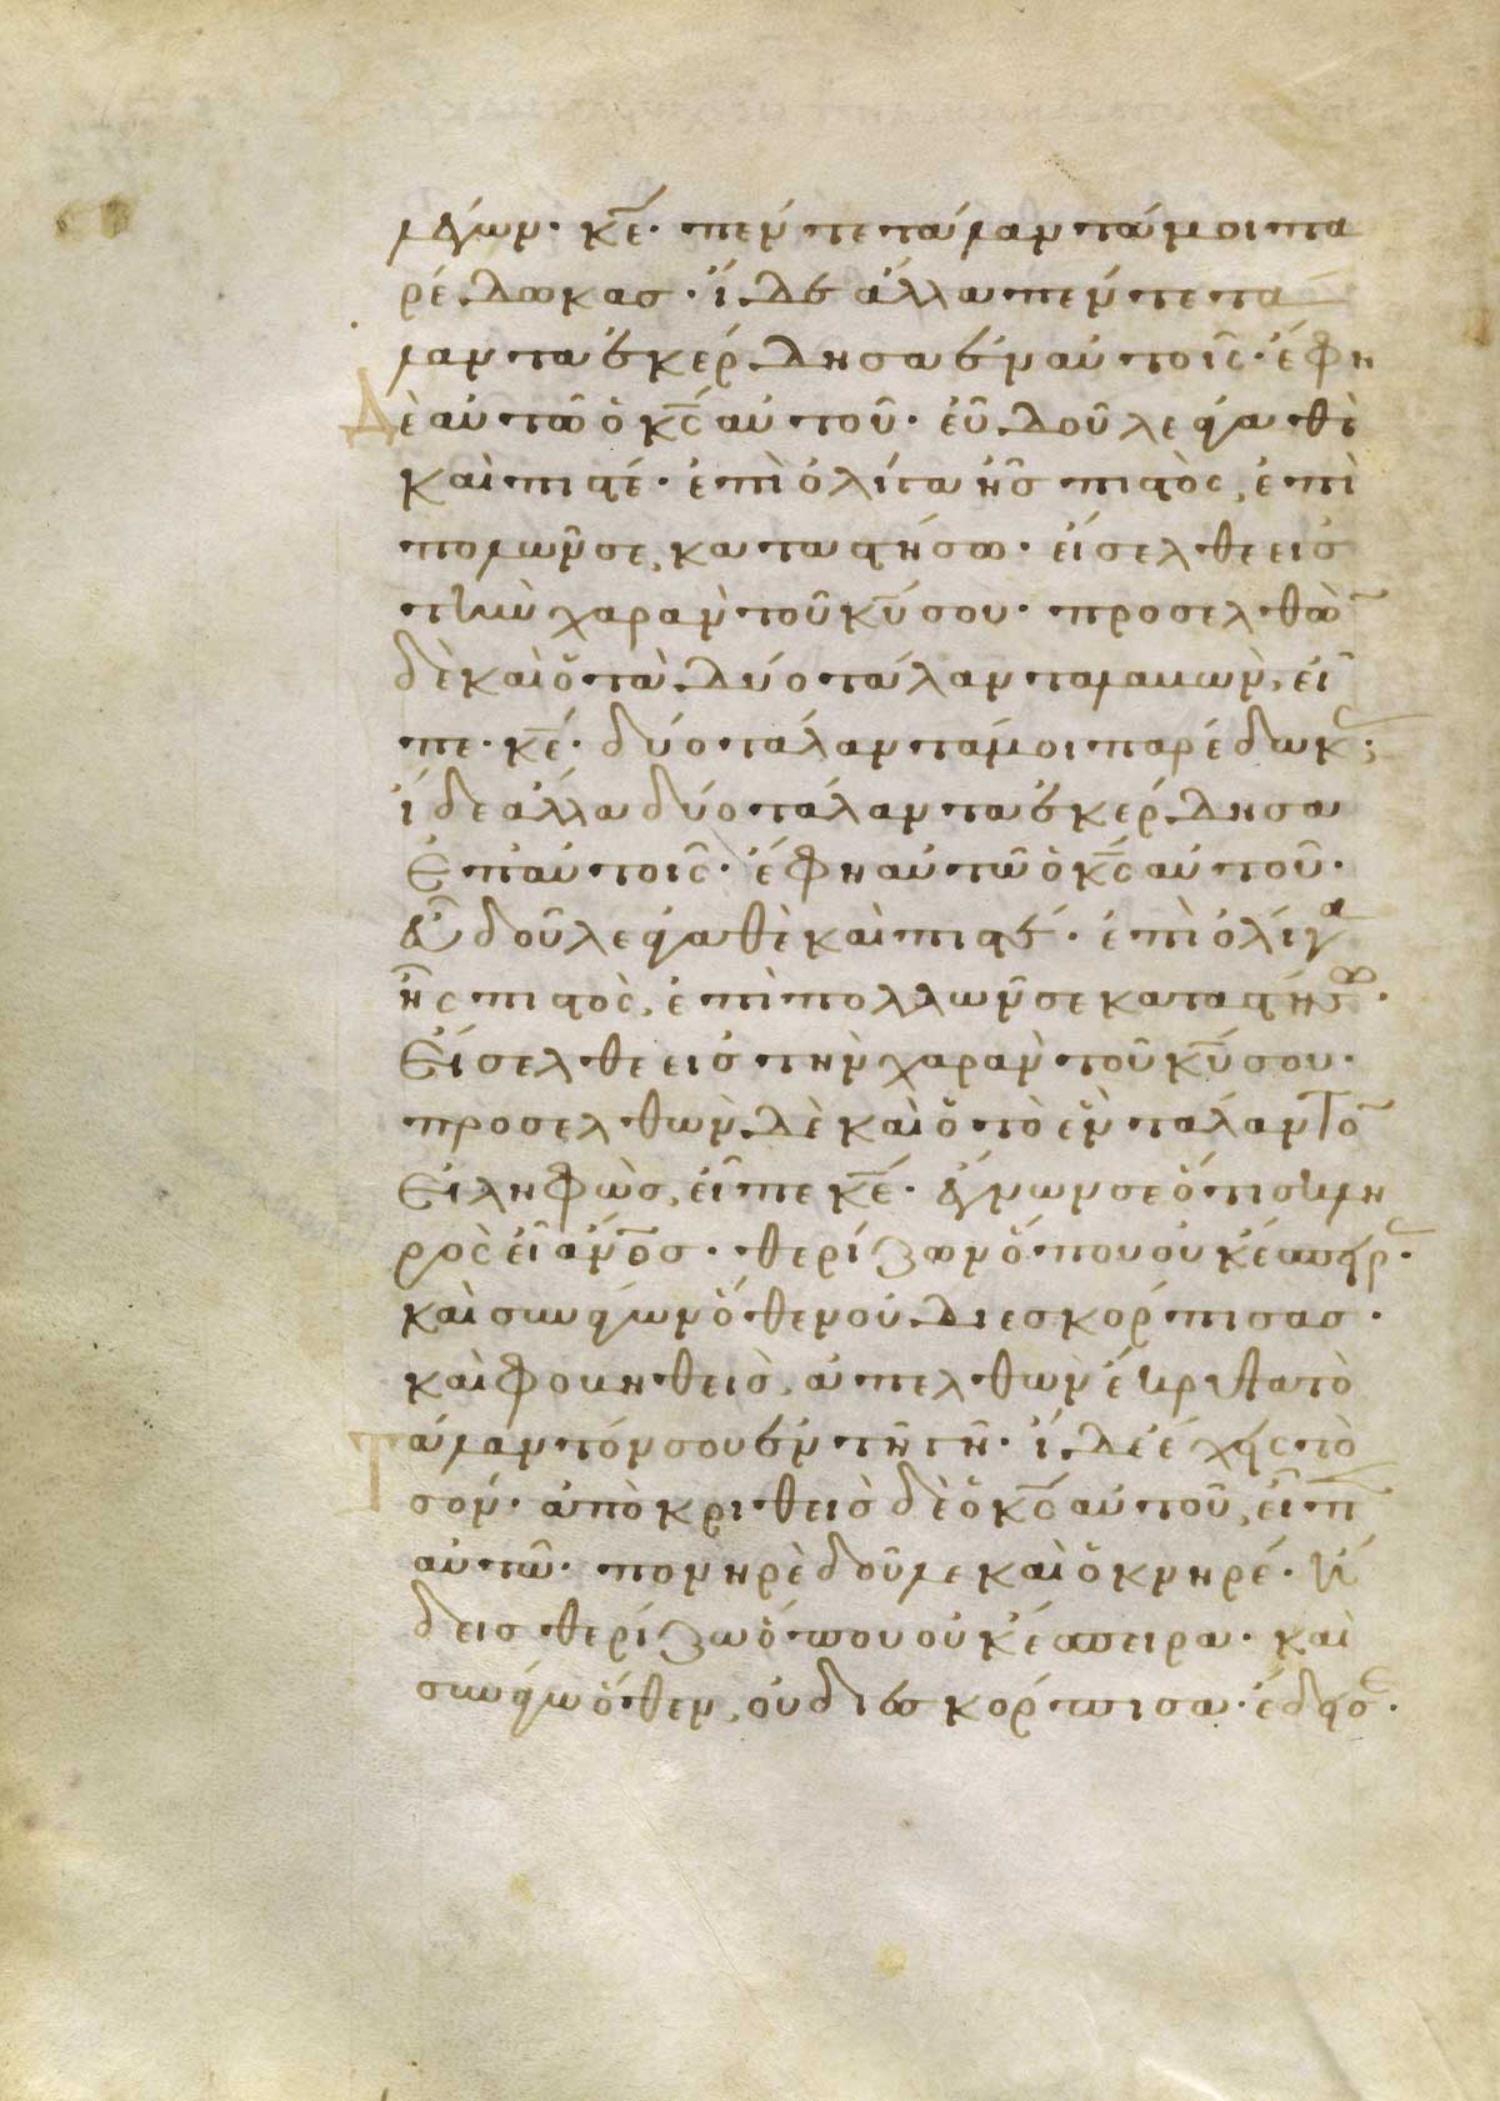 λέγων· κε̅· πέντε τάλαντά μοι πα
ρέδωκας· ἴδε ἄλλα πέντε τά
λαντα ἐκέρδησα ἐν αὐτοῖς· ἔφη
δὲ αὐτῶ ὁ κς̅ αὐτοῦ· εὖ δοῦλε ἀγαθὲ
καὶ πιστέ· ἐπὶ ὀλίγα ἦς πιστὸς, ἐπὶ
πολλῶν σε καταστήσω· εἴσελθε εἰς
τὴν χαρὰν τοῦ κυ̅ σου· προσελθὼ̅
δὲ καὶ ὁ τὰ δύο τάλαντα λαβὼν, εἶ
πε· κε̅· δύο τάλαντά μοι παρέδωκ(ας)·
ἴδε ἄλλα δύο τάλαντα ἐκέρδησα
ἐπ' αὐτοῖς· ἔφη αὐτῶ ὁ κς̅ αὐτοῦ·
εὖ δοῦλε ἀγαθὲ καὶ πιστέ· ἐπὶ ὀλίγα
ἦς πιστὸς, ἐπὶ πολλῶν σε καταστήσω·
εἴσελθε εἰς τὴν χαρὰν τοῦ κυ̅ σου·
προσελθὼν δὲ καὶ ὁ τὸ ἓν τάλαντο̅
εἰληφὼς, εἶπε κε̅· ἔγνων σε ὅτι σκλη
ρὸς εἶ ἄνο̅ς· θερίζων ὅπου οὐκ έσπειρ(ας)·
καὶ συνάγων ὅθεν οὐ διεσκόρπισας·
καὶ φοβηθεὶς, ἀπελθὼν ἔκρυψα τὸ
τάλαντόν σου ἐν τῆ γῆ· ἴδε ἔχεις τὸ
σόν· ἀπὸκριθεὶς δὲ ὁ κς̅ αὐτοῦ, εἶπ(εν)
αὐτῶ· πονηρὲ δοῦλε καὶ ὀκνηρέ· ἤ
δεις θερίζω ὅπου οὐκ έσπειρα· καὶ
συνάγω ὅθεν, οὐ διεσκόρπισα· έδει σ(ε)·